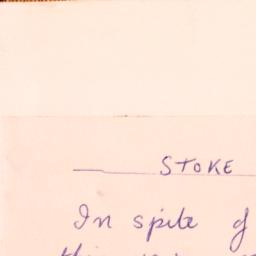 STOKE
In spite of